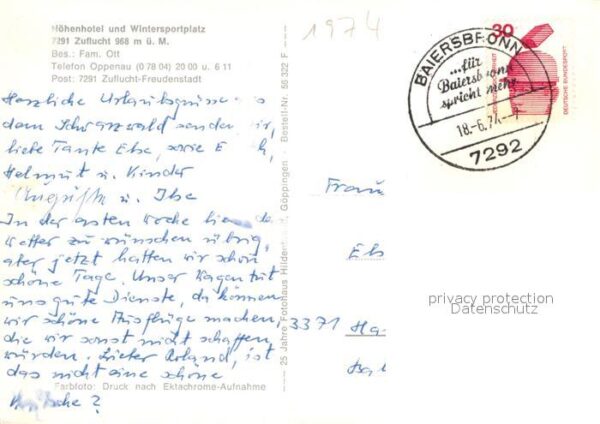 Höhenhotel und Wintersportplatz
7291 Zuflucht 968 m ü. M.
Bes.: Fam. Ott
Telefon Oppenau (0 78 04) 20 00 u. 6 11
Post: 7291 Zuflucht-Freudenstadt
Herzliche Urlaubsgrüsse
dem Schwarzwald senden
liebe Tante Else, sowie E
Helmut u. Kinder
Auguste u. Ilse
In der ersten Woche
Wetter zu wünschen übrig,
aber jetzt hatten wir schon
schöne Tage. Unser Wagen tut
uns gute Dienste, da können
wir schöne Ausflüge machen,
die wir sonst nicht schaffen
würden. Lieber Roland, ist
das nicht eine schöne
?
Farbfoto: Druck nach Ektachrome-Aufnahme
25 Jahre Fotohaus Göppingen · Bestell-Nr. 56 322 F
1974
BAIERSBRONN
...für
Baiersbronn
spricht mehr
18.-6.74
7292
30
DEUTSCHE BUNDESPOST
Frau
Els
3371 Ha
privacy protection
Datenschutz